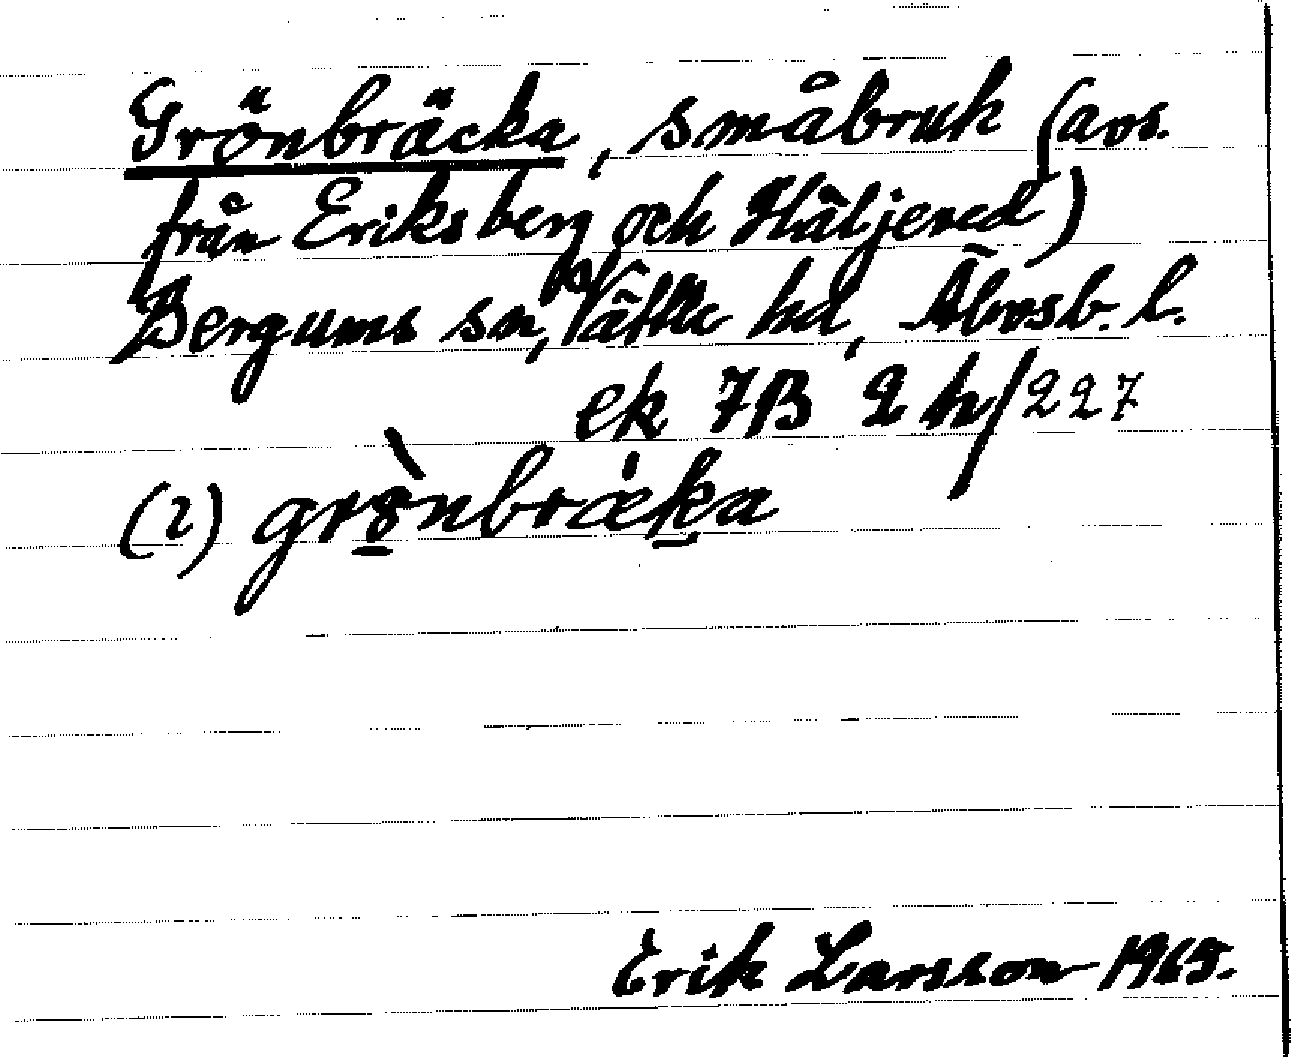 Grönbräcka, småbruk (avs.
från Eriksberg och Häljered)
Bergums sn, Vättle hd, Älvsb. l.
ek 7B 2 h/227
(2) grönbräka
Erik Larsson 1965.